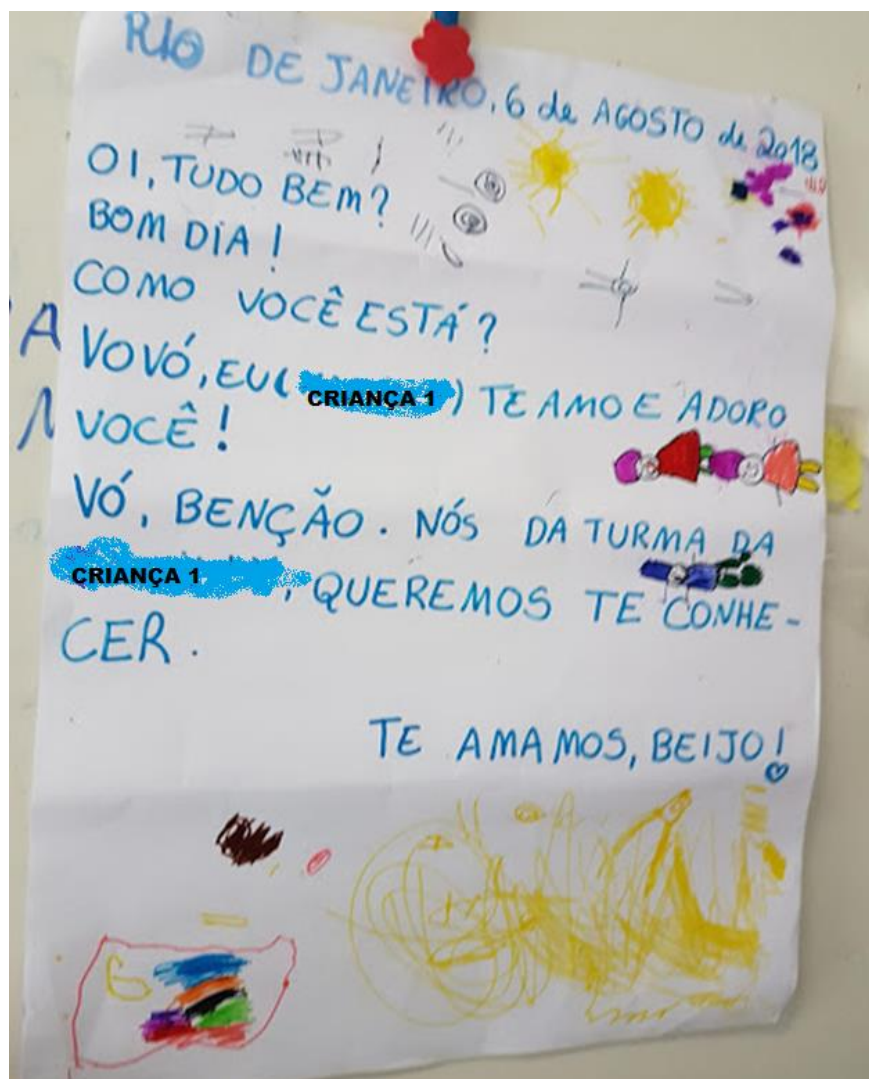 RIO DE JANEIRO, 6 de AGOSTO de 2018
OI, TUDO BEM?
BOM DIA!
COMO VOCÊ ESTÁ?
VOVÓ, EU( CRIANÇA 1 ) TE AMO E ADORO
VOCÊ!
VÓ, BENÇÃO. NÓS DA TURMA DA
CRIANÇA 1, QUEREMOS TE CONHE-
CER.
TE AMAMOS, BEIJO!